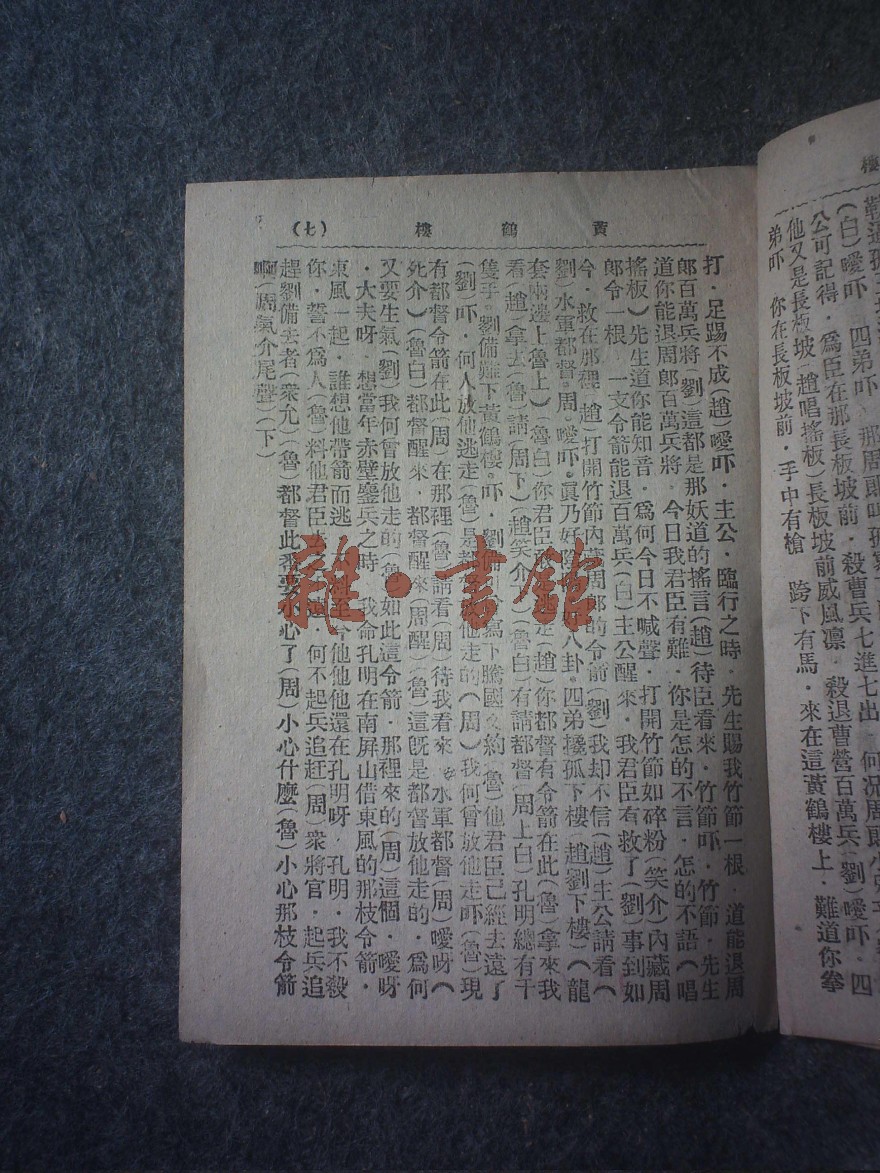 樓
公可記得．為臣在那長板坡前．殺曹兵七進七出　何況周
他又是長板坡(趙唱搖板)長板坡前威風凛．殺退曹營百萬兵(劉)嗳吓．四
弟吓　你在長板坡前．手中有槍　跨下有馬．來在這黃鶴樓上．難道你拳
黃鶴樓
(七)
打．足踢不成(趙)嗳吓．主公．臨行之時．先生賜我竹節一根．道能退周
郎百萬兵將(劉)這都是那妖道的搖言(趙)待臣看來．竹節吓．竹節．先生
道你能退周郎百萬兵將．今日我君臣有難．你是怎的不言．怎的不語(唱
搖板)先生道你能知音．為何今日不喊聲．打開竹節如碎粉(笑介)內藏周
郎令一根．一支令箭能退百萬兵(白)主公醒來．我君臣有救了(劉)事到如
今．救在那裡(趙)打開竹節內藏周郎的令箭(劉)我却不信(趙)主公請看(
劉)水軍都督．周．嗳吓．眞乃妖　八卦．四弟攙孤下樓(趙劉下樓)(龍
套兩邊上魯上)(魯白)你君臣　走(趙)你都督有令箭在此(魯)拿來我
看(趙)拿去(魯)請(周下)(趙笑介)(魯白)有請都督(周上白)孔明總有千
隻手．劉備難下黃鶴樓。吓．劉　寫下騰國文約(魯)他君臣已經去遠了
(劉)吓．何人放他逃走(魯)是都　他走的(周)我何曾放他走吓(魯)現
有都督令箭在此(周)在那裡(魯)請看(周)待我看來．水軍都督(周)嗳呀(
死介)(魯白)都督醒來．都督醒來(周醒)(魯)這旣是都督放他走的．為何
又要生氣(劉)我何曾放他走的(魯)如此這令箭．那裡來的(周)這個．嗳呀
．大夫呀．想當年赤壁鏖兵之時．我命孔明在南屏山借東風的那枝令箭．
東風一起．誰想他帶箭而逃　至今他他他還在孔明呀．孔明．我不殺
你．誓不為人(魯)料他君臣　．何不起兵追赶(周)衆將官．起兵追
趕劉備去者(衆允)(魯)都督此番要小心了(周)小心什麽(魯)小心那枝令箭
啊(周氣介尾聲)(下)
雜·書館